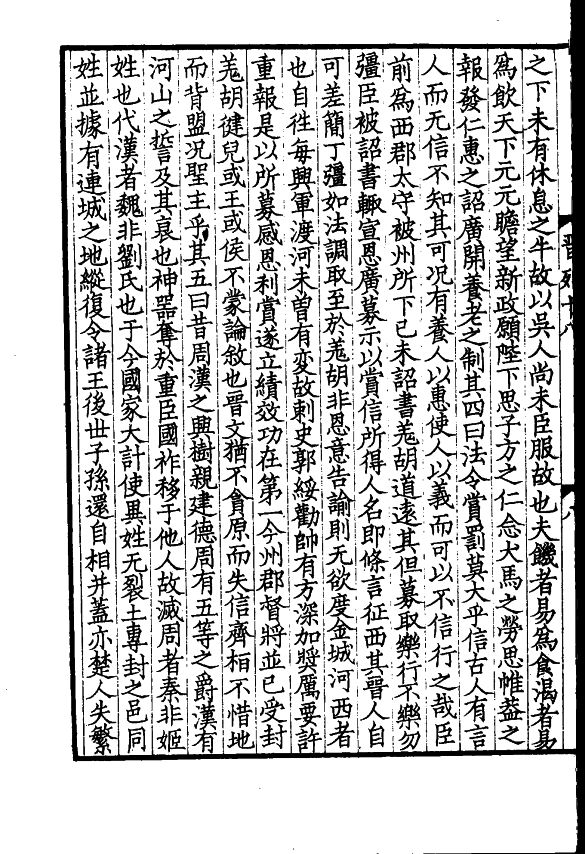 之下未有休息之牛故以吳人尚未臣服故也夫饑者易爲食渴者易
爲飲天下元元瞻望新政願陛下思子方之仁念犬馬之勞思帷蓋之
報發仁惠之詔廣開養老之制其四曰法令賞罰莫大乎信古人有言
人而无信不知其可况有養人以惠使人以義而可以不信行之哉臣
前爲西郡太守被州所下己未詔書羗胡道遠其但募取樂行不樂勿
彊臣被詔書輙宣恩廣募示以賞信所得人名即條言征西其晉人自
可差簡丁彊如法調取至於羗胡非恩意告諭則无欲度金城河西者
也自往每興軍渡河未曽有変故刺史郭綏勸帥有方深加奬厲要許
重報是以所募感恩利賞遂立績效功在第一今州郡督將並已受封
羗胡健兒或王或侯不蒙論敘也晉文猶不貪原而失信齊桓不惜地
而背盟况聖主乎其五曰昔周漢之興樹親建德周有五等之爵漢有
河山之誓及其衰也神器奪於重臣國祚移于他人故滅周者秦非姬
姓也代漢者魏非劉氏也于今國家大計使異姓无裂土專封之邑同
姓並據有連城之地縱復令諸王後世子孫還自相并蓋亦楚人失繁